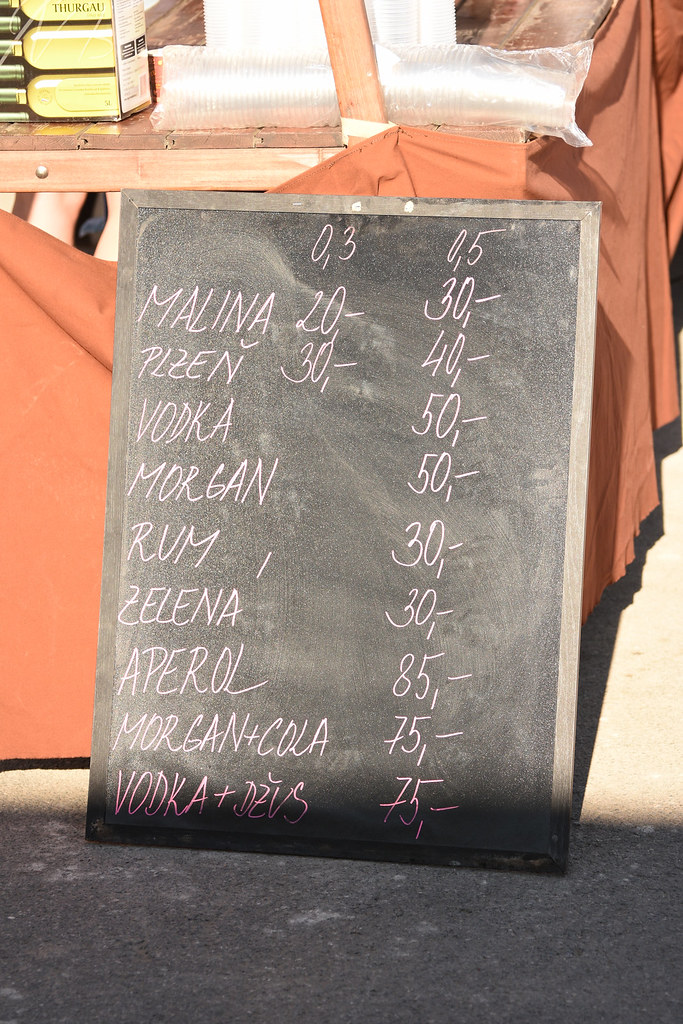 THURGAU
0,3 0,5
MALINA 20,- 30,-
PLZEŇ 30,- 40,-
VODKA 50,-
MORGAN 50,-
RUM 30,-
ZELENÁ 30,-
APEROL 85,-
MORGAN+COLA 75,-
VODKA+DŽUS 75,-